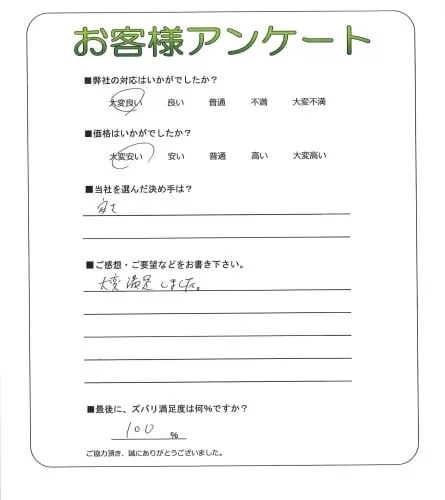 お客様アンケート
■弊社の対応はいかがでしたか？
大変良い 良い 普通 不満 大変不満
■価格はいかがでしたか？
大変安い 安い 普通 高い 大変高い
■当社を選んだ決め手は？
安さ
■ご感想・ご要望などをお書き下さい。
大変満足しました。
■最後に、ズバリ満足度は何％ですか？
100 %
ご協力頂き、誠にありがとうございました。